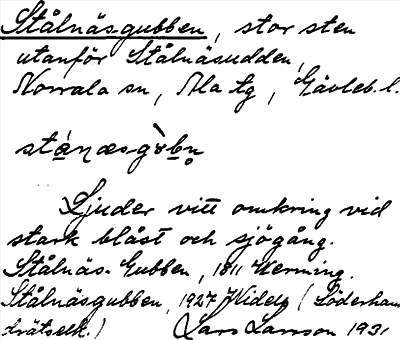 Stålnäsgubben, stor sten
utanför Stålnäsudden,
Norrala sn, Ala tg, Gävleb. l.
Ljuder vitt omkring vid
stark blåst och sjögång.
Stålnäs-Gubben, 1811 Wenning.
Stålnäsgubben, 1927 (Söderham
drätselk.) Lars Larsson 1931